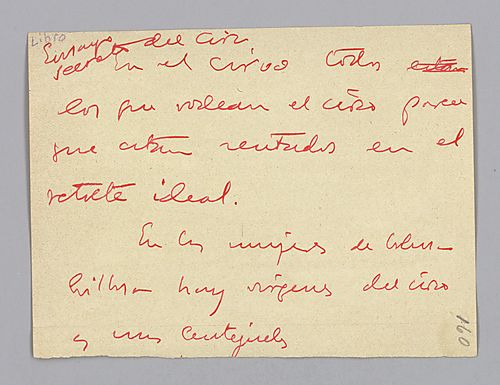 Libro
Ensayo del circo
secreto
En el circo todos
los que rodean el circo parece
que están sentados en el
retrete ideal.
En las mujeres de
hay vírgenes del circo
y mis
160